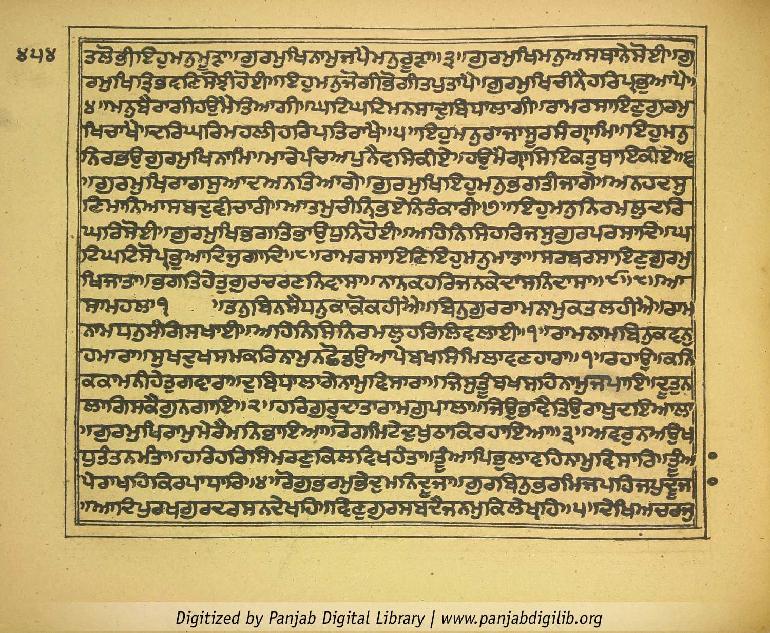 ੪੫੪
ਤਲੋਭੀਇਹੁਮਨੁਮੂੜਾ॥ਗੁਰਮੁਖਿਨਾਮੁਜਪੈਮਨੁਰੂੜਾ॥੩॥ਗੁਰਮੁਖਿਮਨੁਅਸਥਾਨੇਸੋਈ॥ਗੁ
ਰਮੁਖਿਤ੍ਰਿਭਵਣਿਸੋਝੀਹੋਈ॥ਇਹੁਮਨੁਜੋਗੀਭੋਗੀਤਪੁਤਾਪੈ॥ਗੁਰਮੁਖਿਚੀਨੈਹਰਿਪ੍ਰਭੁਆਪੈ॥
੪॥ਮਨੁਬੈਰਾਗੀਹਉਮੈਤਿਆਗੀ॥ਘਟਿਘਟਿਮਨਸਾਦੁਬਿਧਾਲਾਗੀ॥ਰਾਮਰਸਾਇਣੁਗੁਰਮੁ
ਖਿਚਾਖੈ॥ਦਰਿਘਰਿਮਹਲੀਹਰਿਪਤਿਰਾਖੈ॥੫॥ਇਹੁਮਨੁਰਾਜਾਸੂਰਸੰਗ੍ਰਾਮਿ॥ਇਹੁਮਨੁ
ਨਿਰਭਉਗੁਰਮੁਖਿਨਾਮਿ॥ਮਾਰੇਪੰਚਅਪੁਨੈਵਸਿਕੀਏ॥ਹਉਮੈਗ੍ਰਾਸਿਇਕਤੁਥਾਇਕੀਏ॥੬
॥ਗੁਰਮੁਖਿਰਾਗਸੁਆਦਅਨਤਿਆਗੇ॥ਗੁਰਮੁਖਿਇਹੁਮਨੁਭਗਤੀਜਾਗੇ॥ਅਨਹਦਸੁ
ਣਿਮਾਨਿਆਸਬਦੁਵੀਚਾਰੀ॥ਆਤਮੁਚੀਨ੍ਹਿਭਏਨਿਰੰਕਾਰੀ॥੭॥ਇਹੁਮਨੁਨਿਰਮਲੁਦਰਿ
ਘਰਿਸੋਈ॥ਗੁਰਮੁਖਿਭਗਤਿਭਾਉਧੁਨਿਹੋਈ॥ਅਹਿਨਿਸਿਹਰਿਜਸੁਗੁਰਪਰਸਾਦਿ॥ਘ
ਟਿਘਟਿਸੋਪ੍ਰਭੁਆਦਿਜੁਗਾਦਿ॥੮॥ਰਾਮਰਸਾਇਣਿਇਹੁਮਨੁਮਾਤਾ॥ਸਰਬਰਸਾਇਣੁਗੁਰਮੁ
ਖਿਜਾਤਾ॥ਭਗਤਿਹੇਤੁਗੁਰਚਰਣਨਿਵਾਸਾ॥ਨਾਨਕਹਰਿਜਨਕੇਦਾਸਨਿਦਾਸਾ॥੯॥੮॥ਆ
ਸਾਮਹਲਾ੧ ॥ਤਨੁਬਿਨਸੈਧਨੁਕਾਕੋਕਹੀਐ॥ਬਿਨੁਗੁਰਰਾਮਨਾਮੁਕਤਲਹੀਐ॥ਰਾਮ
ਨਾਮਧਨੁਸੰਗਿਸਖਾਈ॥ਅਹਿਨਿਸਿਨਿਰਮਲੁਹਰਿਲਿਵਲਾਈ॥੧॥ਰਾਮਨਾਮਬਿਨੁਕਵਨੁ
ਹਮਾਰਾ॥ਸੁਖਦੁਖਸਮਕਰਿਨਾਮੁਨਛੋਡਉਆਪੇਬਖਸਿਮਿਲਾਵਣਹਾਰਾ॥੧॥ਰਹਾਉ॥ਕਨਿ
ਕਕਾਮਨੀਹੇਤੁਗਵਾਰਾ॥ਦੁਬਿਧਾਲਾਗੇਨਾਮੁਵਿਸਾਰਾ॥ਜਿਸੁਤੂੰਬਖਸਹਿਨਾਮੁਜਪਾਇ॥ਦੂਤੁਨ
ਲਾਗਿਸਕੈਗੁਨਗਾਇ॥੨॥ਹਰਿਗੁਰੁਦਾਤਾਰਾਮਗੁਪਾਲਾ॥ਜਿਉਭਾਵੈਤਿਉਰਾਖੁਦਇਆਲਾ
॥ਗੁਰਮੁਖਿਰਾਮੁਮੇਰੈਮਨਿਭਾਇਆ॥ਰੋਗਮਿਟੇਦੁਖੁਠਾਕਿਰਹਾਇਆ॥੩॥ਅਵਰੁਨਅਉਖ
ਧੁਤੰਤਨਮੰਤਾ॥ਹਰਿਹਰਿਸਿਮਰਣੁਕਿਲਵਿਖਹੰਤਾ॥ਤੂੰਆਪਿਭੁਲਾਵਹਿਨਾਮੁਵਿਸਾਰਿ॥ਤੂੰਆ
ਪੇਰਾਖਹਿਕਿਰਪਾਧਾਰਿ॥੪॥ਰੋਗੁਭਰਮੁਭੇਦੁਮਨਿਦੂਜਾ॥ਗੁਰਬਿਨੁਭਰਮਿਜਪਹਿਜਪੁਦੂਜਾ
॥ਆਦਿਪੁਰਖਗੁਰਦਰਸਨਦੇਖਹਿ॥ਵਿਣੁਗੁਰਸਬਦੈਜਨਮੁਕਿਲੇਖਹਿ॥੫॥ਦੇਖਿਅਚਰਜੁ
Digitized by Panjab Digital Library | www.panjabdigilib.org